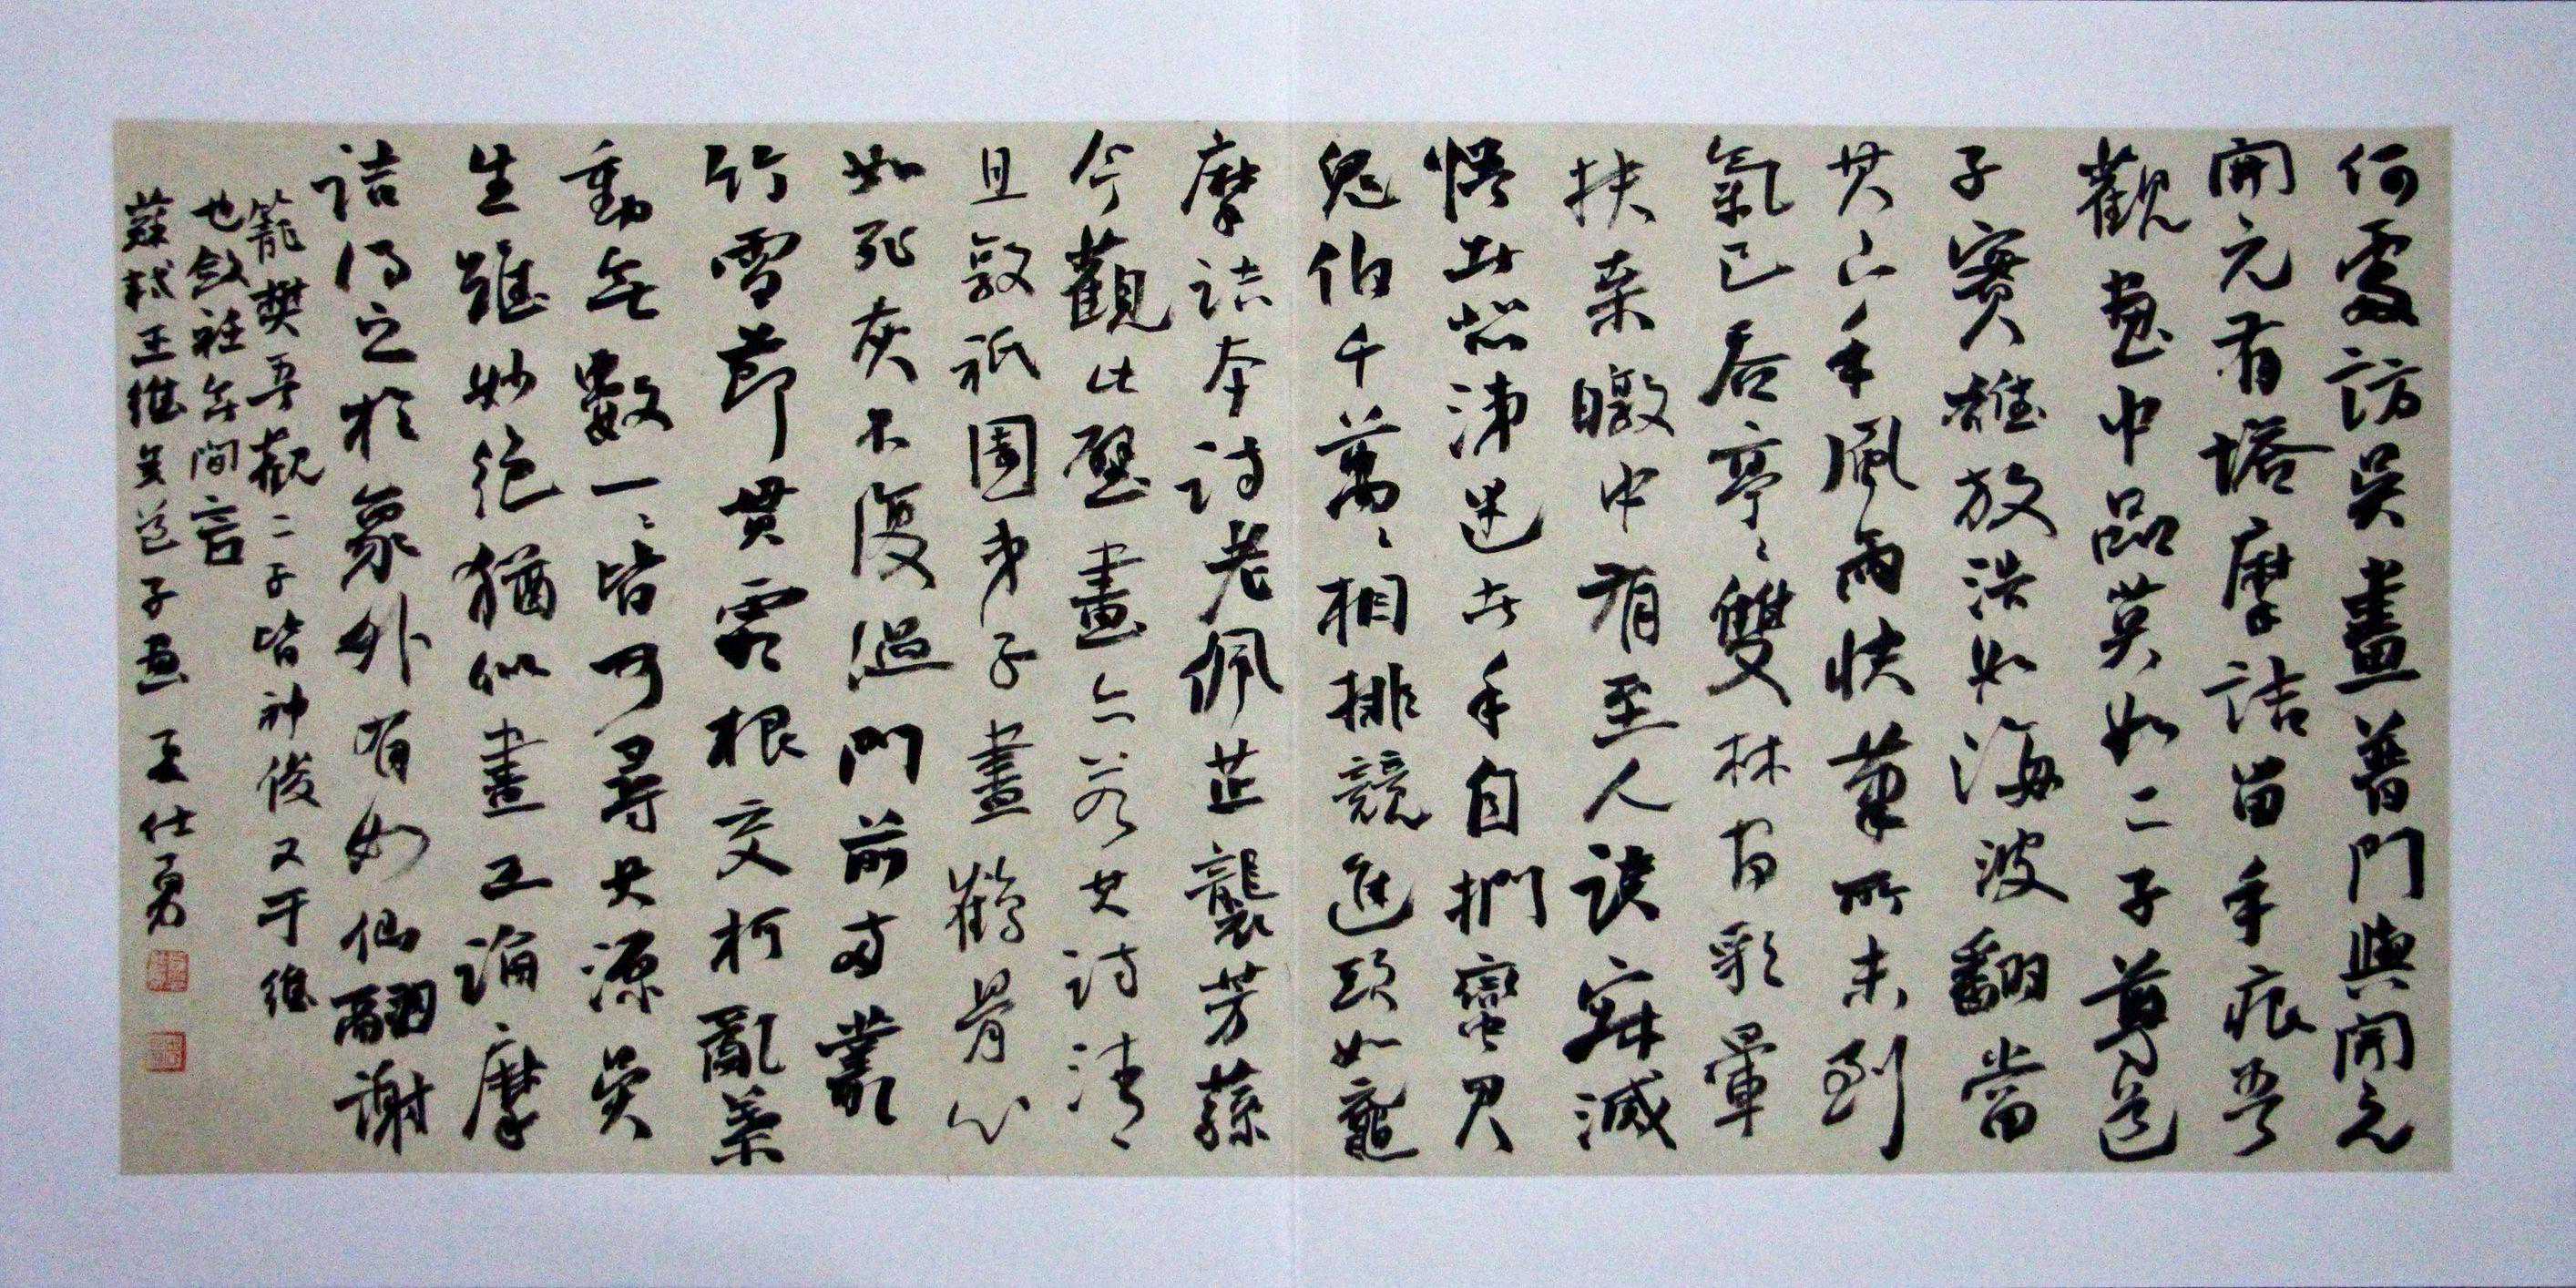 何處訪吳畫普門與開元
開元有塔摩詰留手痕吾
觀畫中品莫如二子尊道
子實雄放浩如海波翻當
其下手風雨快筆所未到
氣已吞亭々雙林間彩暈
扶桑暾中有至人談寂滅
悟者悲涕迷者手自捫蠻君
鬼伯千萬々相排競進頭如黿
摩詰本詩老佩芷襲芳蓀
今觀此壁畫亦若其詩清
且敦祇園弟子盡鶴骨心
如死灰不復溫門前兩叢
竹雪節貫霜根交柯亂葉
動無數一々皆可尋其源吳
生雖妙絕猶似畫工論摩
詰得之於象外有如仙翮謝
籠樊吾觀二子皆神俊又于維
也斂衽無間言
蘇軾王維吳道子畫 王仕勇